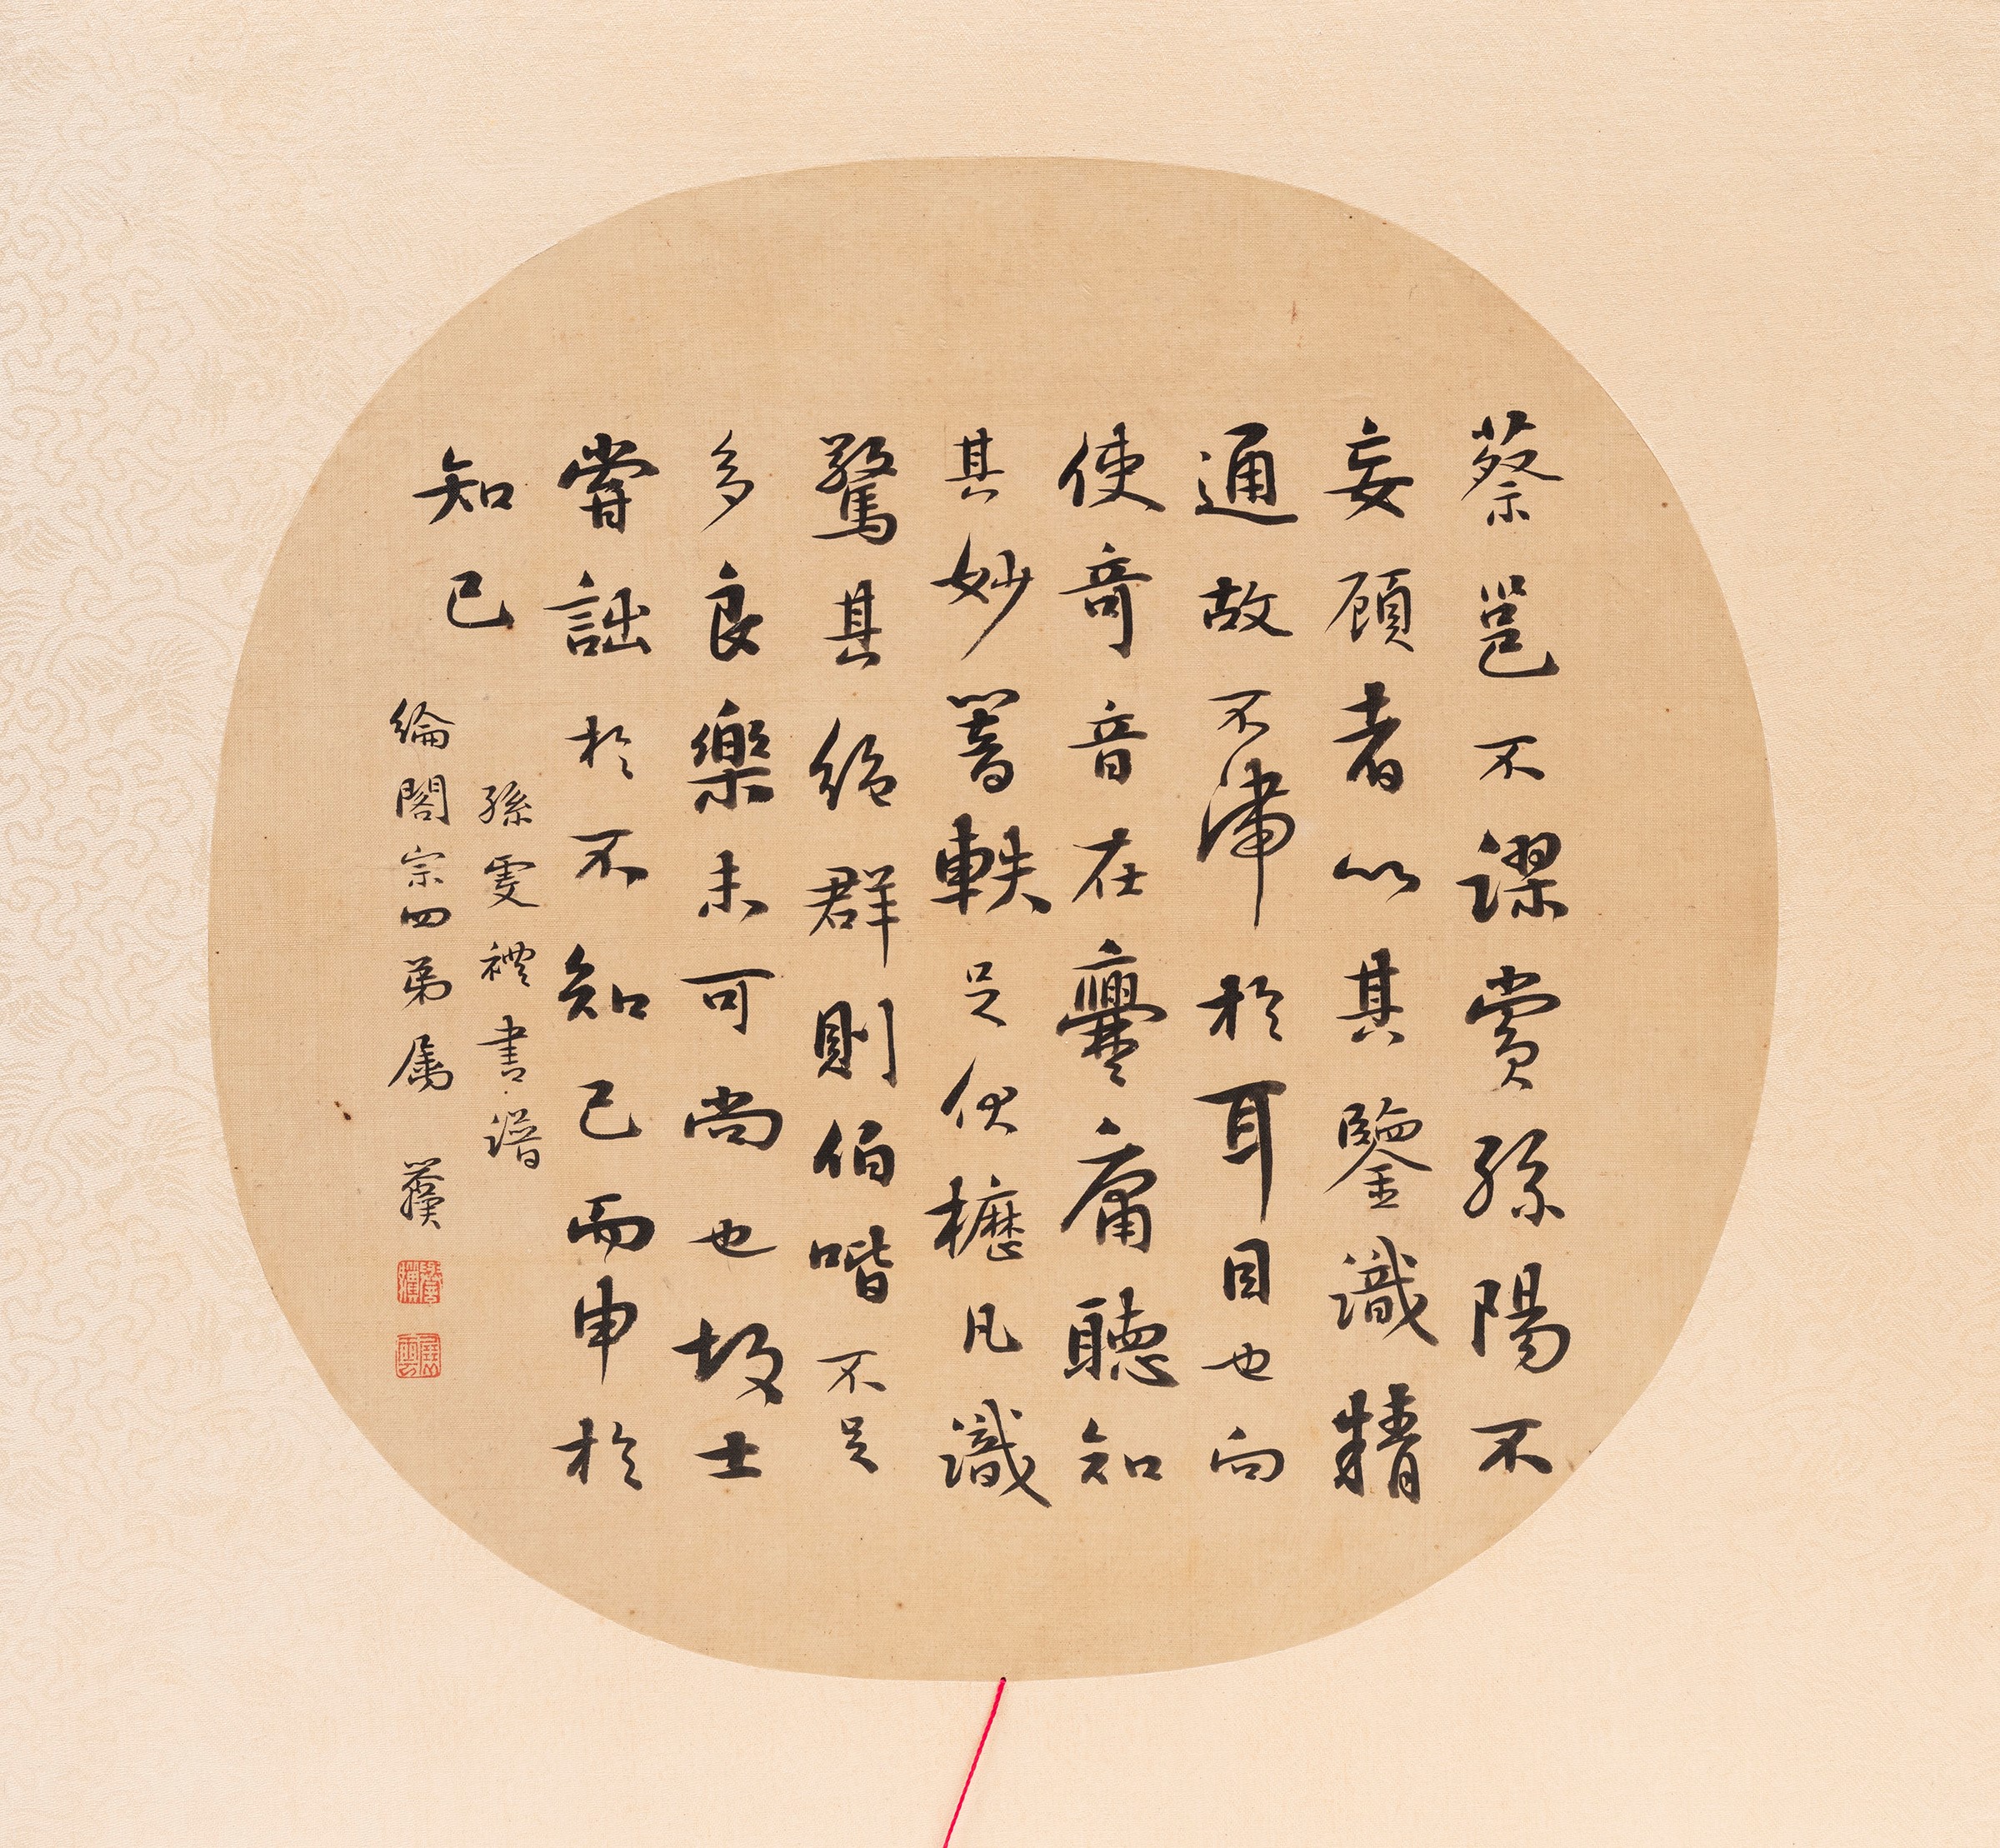 蔡邕不謬賞孫陽不
妄顧者以其鑒識精
通故不滯於耳目也向
使奇音在爨庸聽知
其妙軼足伏櫪凡識
驚其絕群則伯喈不足
多良樂未可尚也故士
嘗詘於不知己而申於
知己
孫虔禮書譜
綸閣宗四弟屬